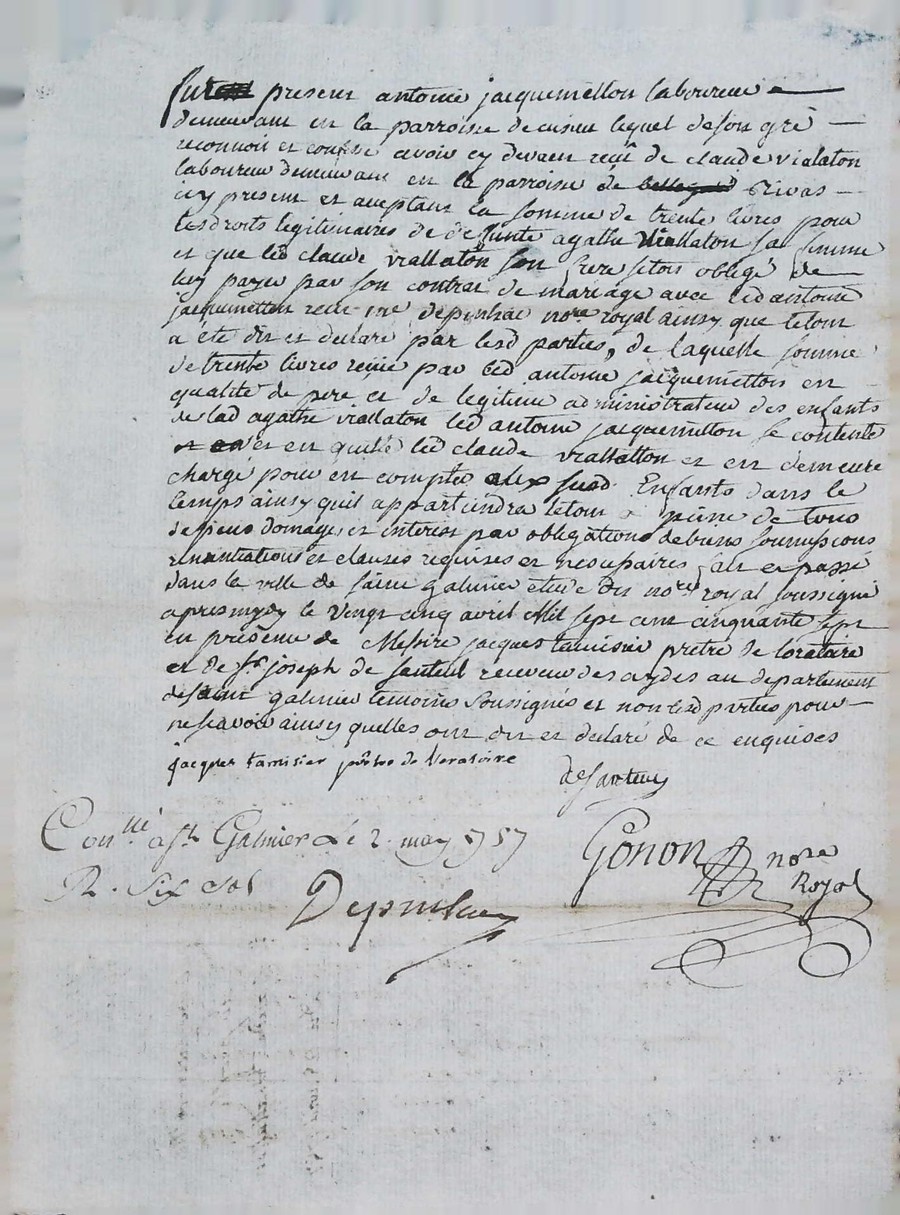 fut present antoine jacquemetton laboureur
demeurant en la parroisse de cuzieu lequel de son gré
reconnoit et confesse avoir cy devant reçû de claude viallaton
laboureur demeurant en la parroisse de Rivas
icy present et acceptant la somme de trente livres pour
les droits legitimaires de defunte agathe viallaton sa femme
et que led claude viallaton son frere setoit obligé de
luy payer par son contrat de mariage avec led antoine
jacquemetton reçu me depinhac nore royal ainsy que letout
a été dit et declaré par lesd parties, de laquelle somme
de trente livres reçüe par led antoine jacquemetton en
qualité de pere et de legitime administrateur des enfants
de lad agathe viallaton led antoine jacquemetton se contente
et en quitte led claude viallatton et en demeure
chargé pour en compter auxsusd. Enfants dans le
temps ainsy quil appartiendra letout a peine de tous
depens domages et interest par obligations debiens soumissions
renontiations et clauses requises et necessaires fait et passé
dans la ville de saint galmier etude du nore royal soussigné
apresmydy le vingt cinq avril Mil sept cent cinquante sept
en presence de Messire jacques tamisier pretre de loratoire
et de Sr joseph de santeul receveur des aydes au departement
de saint galmier temoins soussignés et non lesd parties pour
ne scavoir ainsy quelles ont dit et declaré de ce enquises
jacques tamisier prêtre de l'oratoire
desanteul
Gonon nore
Royal
Conllé a St Galmier Le 2. may 1757
R. Six sols
Depinhac